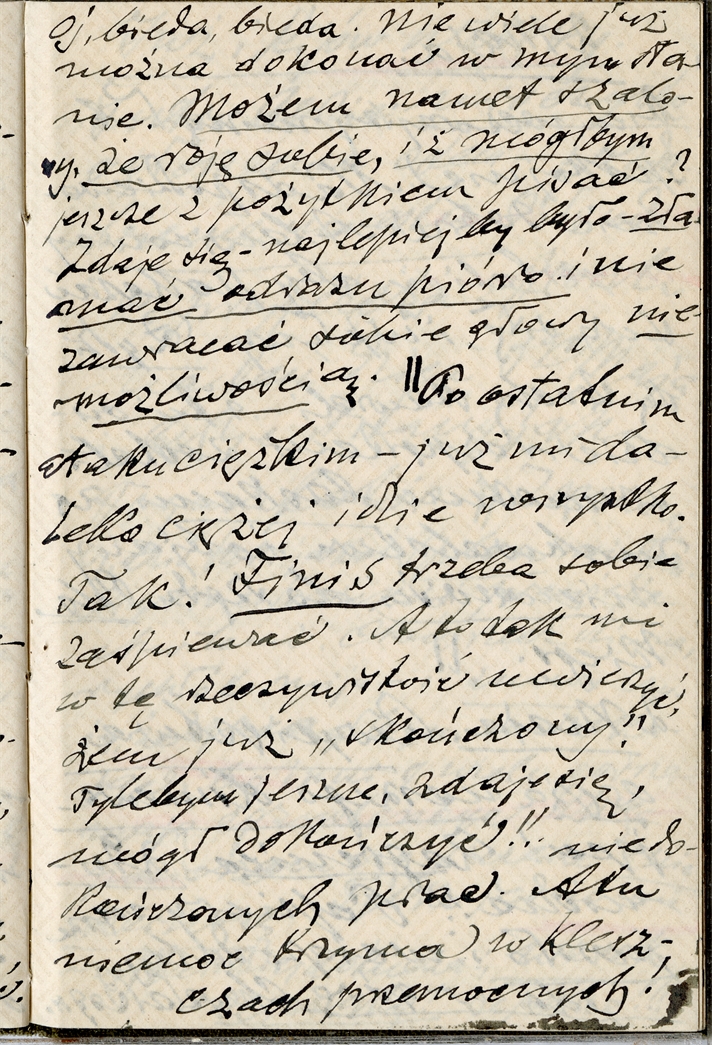 Oj, bieda, bieda. Nie wiele już
można dokonać w mym sta-
nie. Możem nawet szalo-
ny, że roję sobie, iż mógłbym
jeszcze z pożytkiem pisać?
Zdaje się - najlepiej by było - zła-
mać odrazu pióro i nie
zawracać sobie głowy nie-
możliwością. || Po ostatnim
ataku ciężkim - już mi da-
leko ciężej idzie wszystko.
Tak! Finis trzeba sobie
zaśpiewać. A to tak mi
w tę rzeczywistość uwierzyć,
żem już „skończony”!
Tylebym jeszcze, zdaje się,
mógł dokończyć!! niedo-
kończonych prac. A tu
niemoc trzyma w klesz-
czach przemocnych!